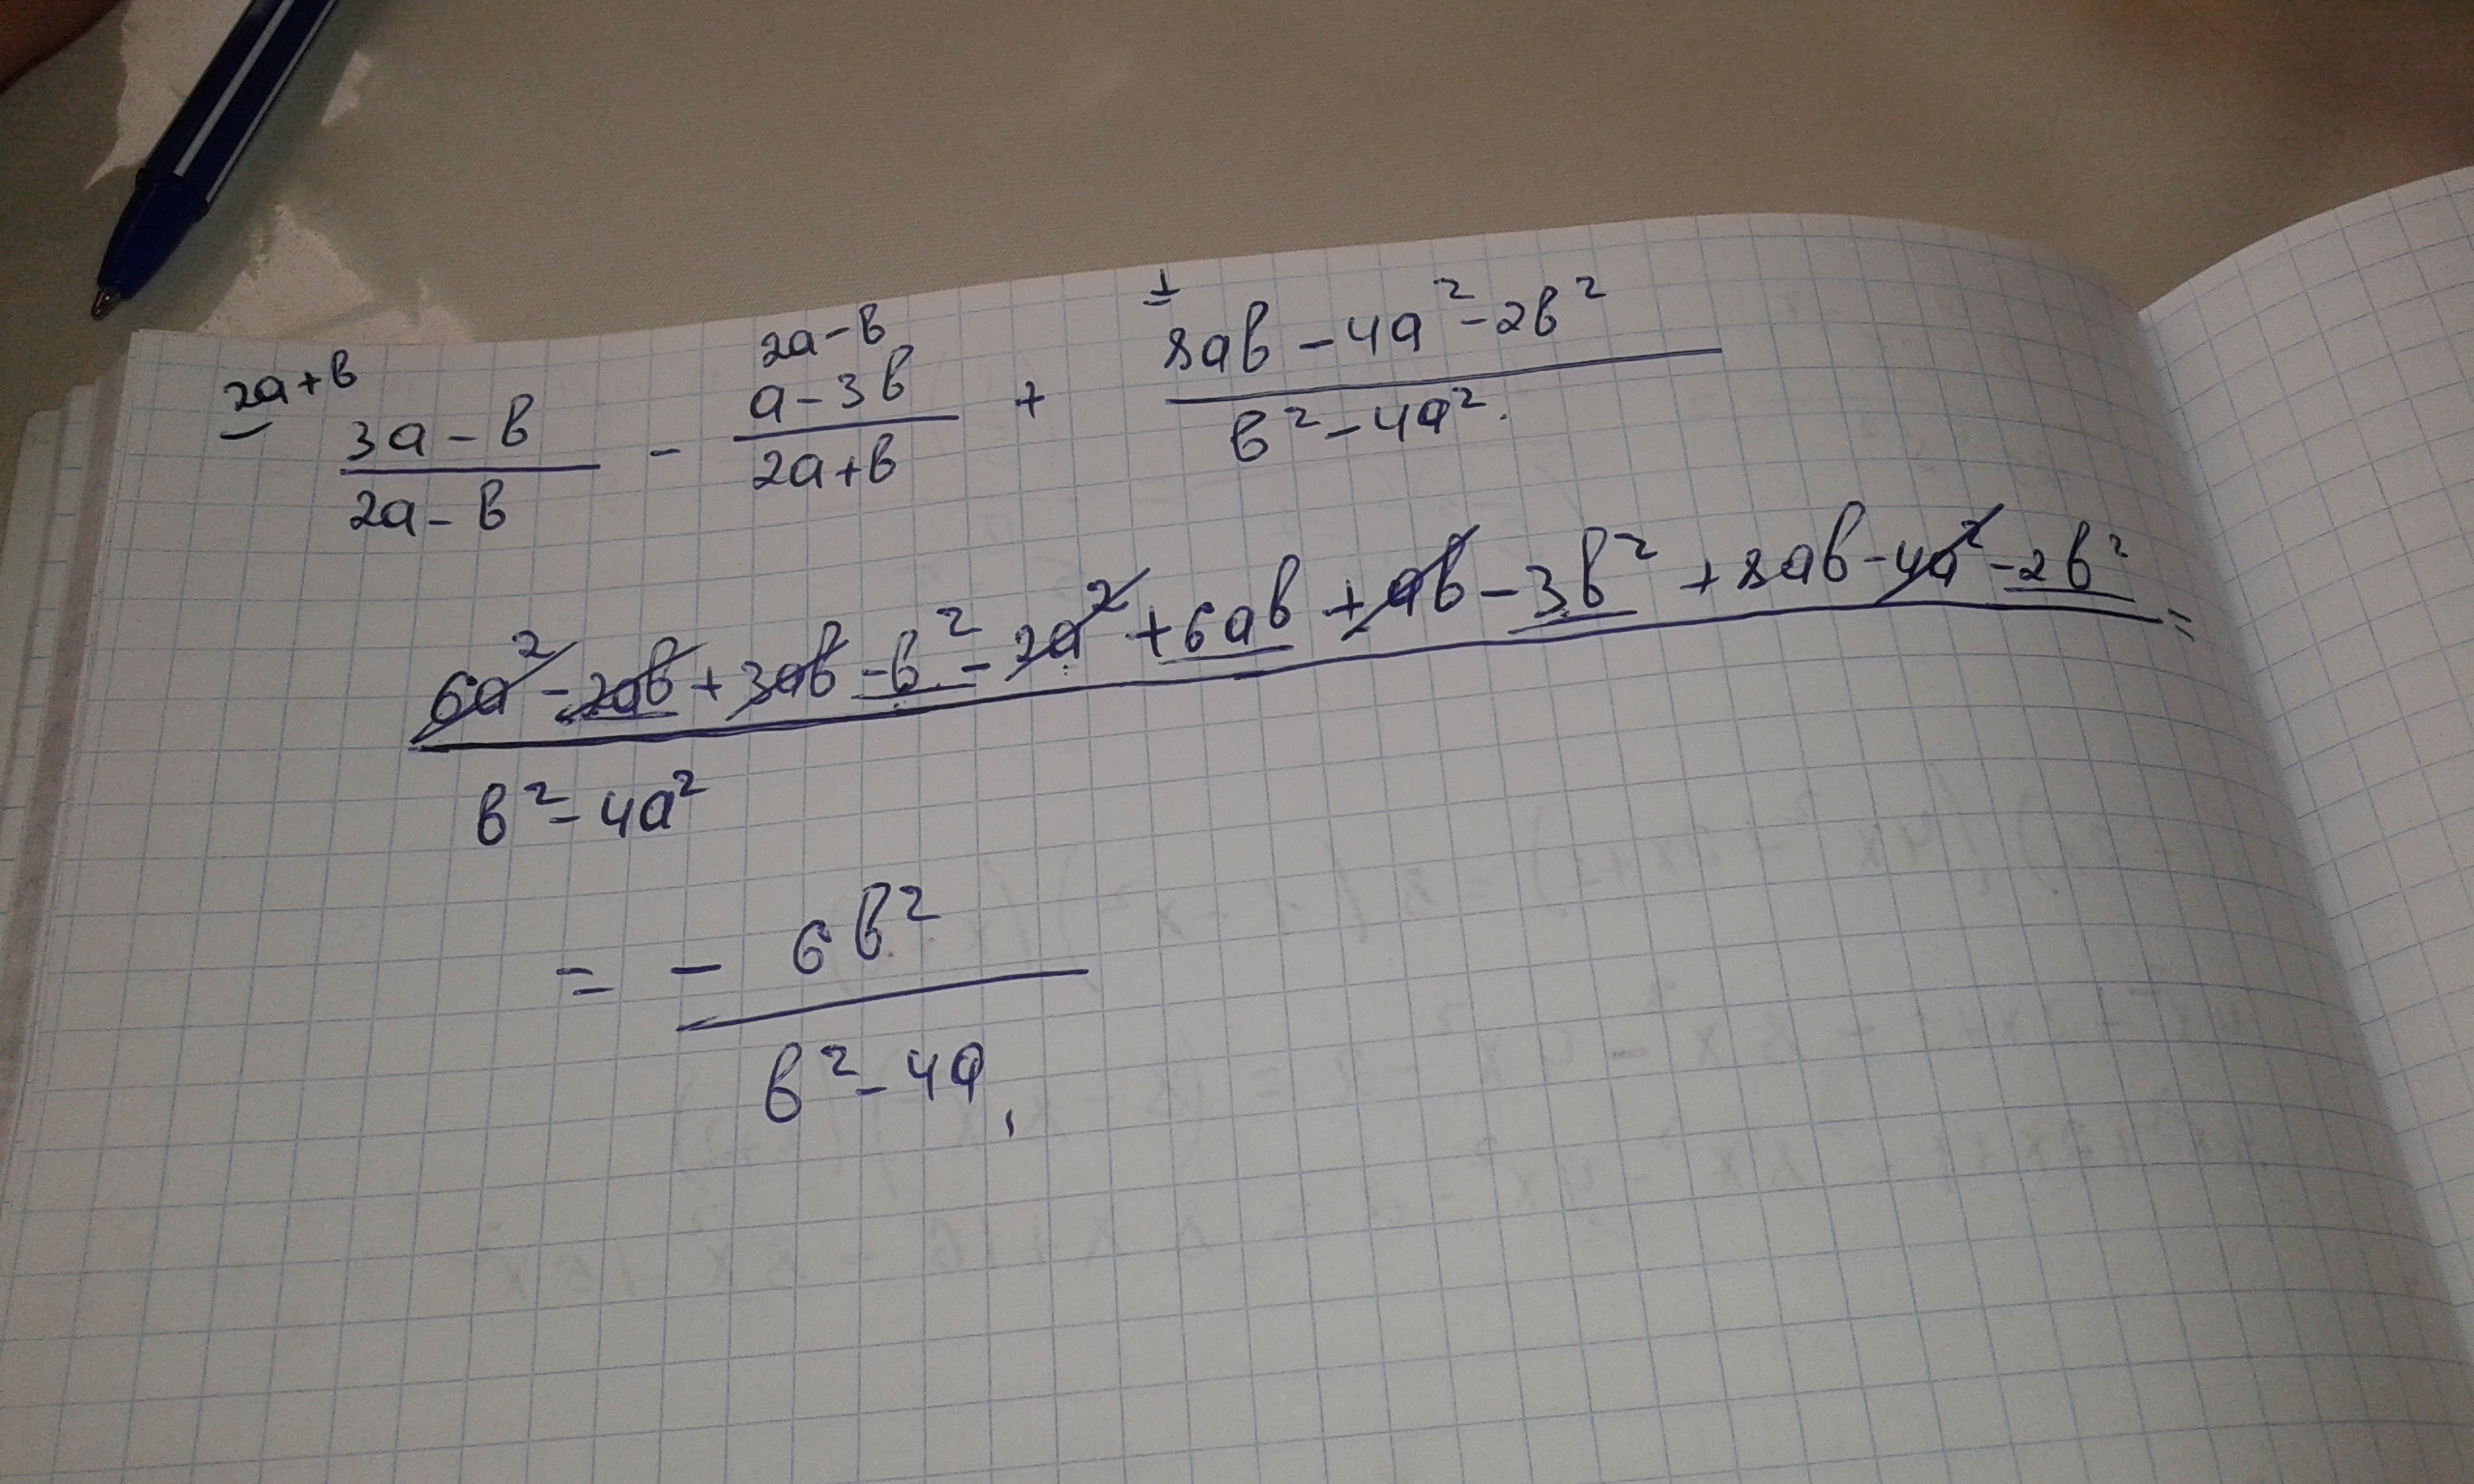 2a+b 2a-b 1
(3a-b)/(2a-b) - (a-3b)/(2a+b) + (8ab-4a²-2b²)/(b²-4a²).
(6a²-2ab+3ab-b²-2a²+6ab+ab-3b²+8ab-4a²-2b²)/(b²-4a²) =
= - 6b²/(b²-4a),